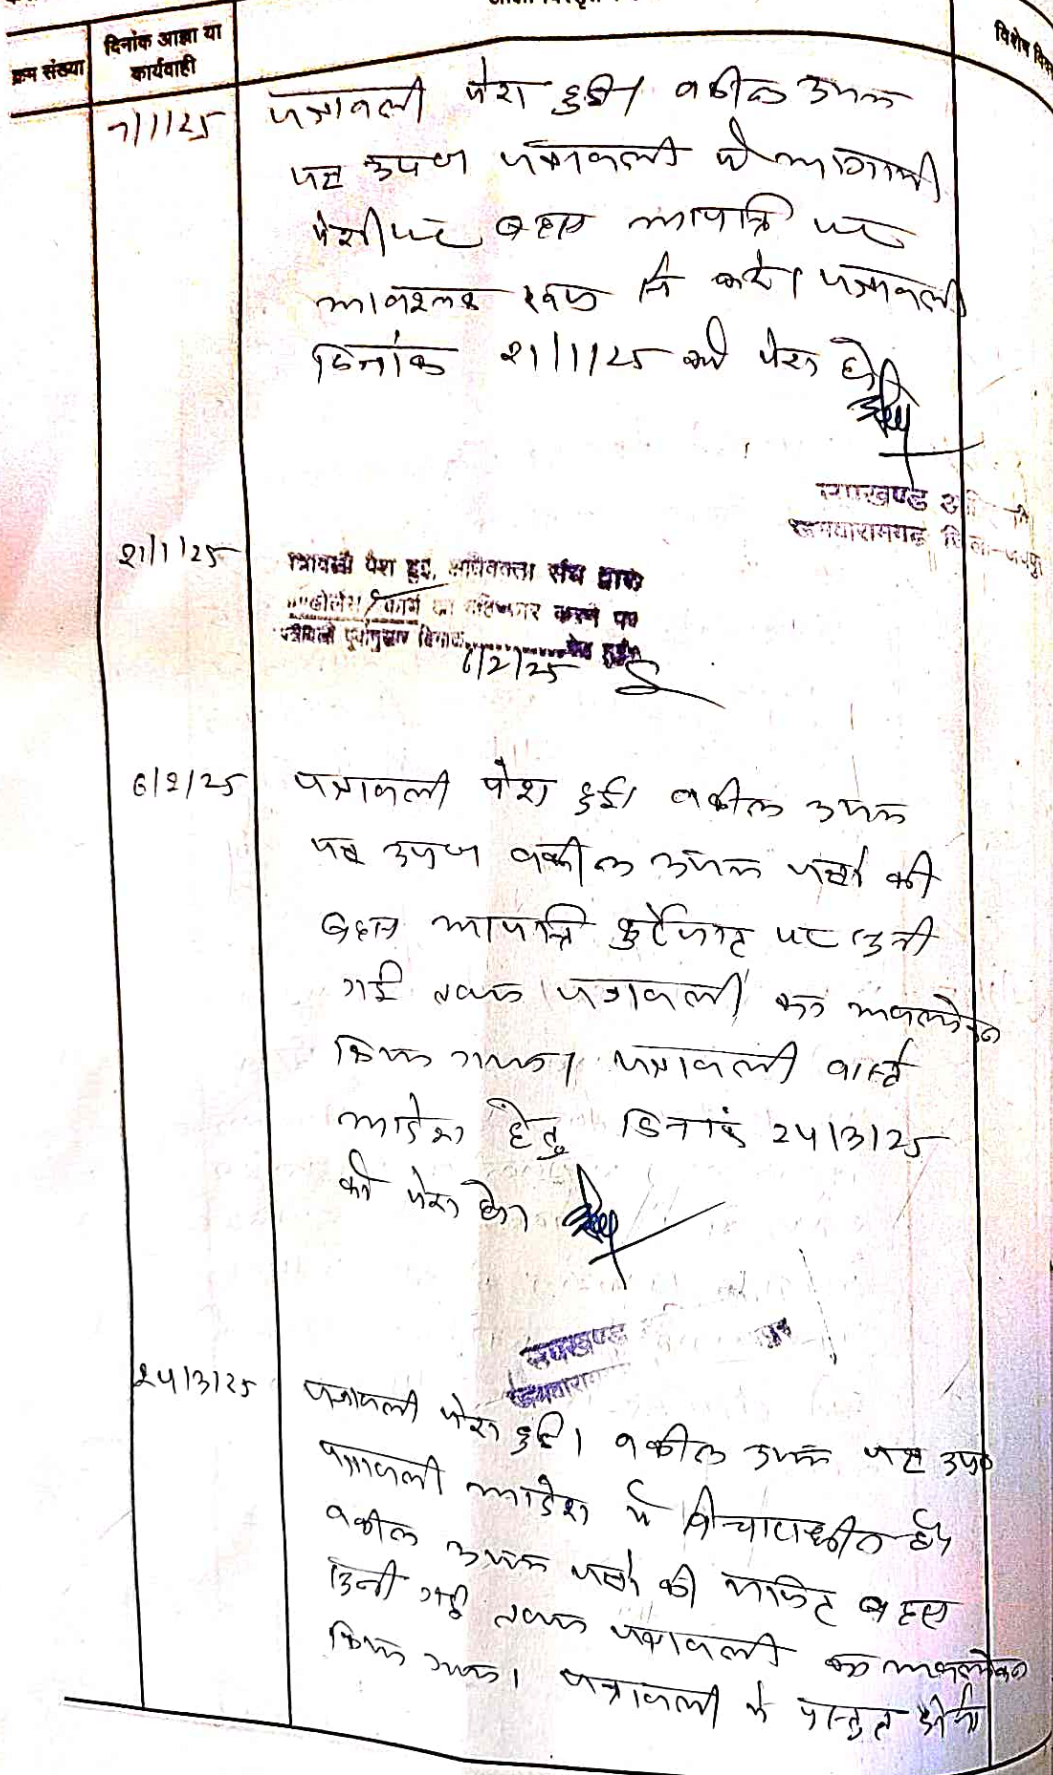 क्रम संख्या
दिनांक आज्ञा या
कार्यवाही
7/1/25
पत्रावली पेश हुई। वकील उभय
पक्ष उप० पत्रावली में आगामी
पेशी पर बहस आपत्ति पर
आवश्यक रूप से करे। पत्रावली
दिनांक 21/1/25 को पेश हो।
उपखण्ड
जमवारामगढ जिला-जयपुर
21/1/25
पत्रावली पेश हुई, अधिवक्ता संघ द्वारा
कार्य का बहिष्कार करने पर
पत्रावली पूर्वानुसार दिनांक
6/2/25
6/2/25
पत्रावली पेश हुई। वकील उभय
पक्ष उप० वकील उभय पक्षो की
बहस आपत्ति कुर्रेजात पर सुनी
गई तथा पत्रावली का अवलोकन
किया गया। पत्रावली वास्ते
आदेश हेतु दिनांक 24/3/25
को पेश हो।
उपखण्ड
24/3/25
पत्रावली पेश हुई। वकील उभय पक्ष उप०
पत्रावली आदेश में विचाराधीन है।
वकील उभय पक्षो की बहस
सुनी गई तथा पत्रावली का अवलोकन
किया गया। पत्रावली में प्रस्तुत